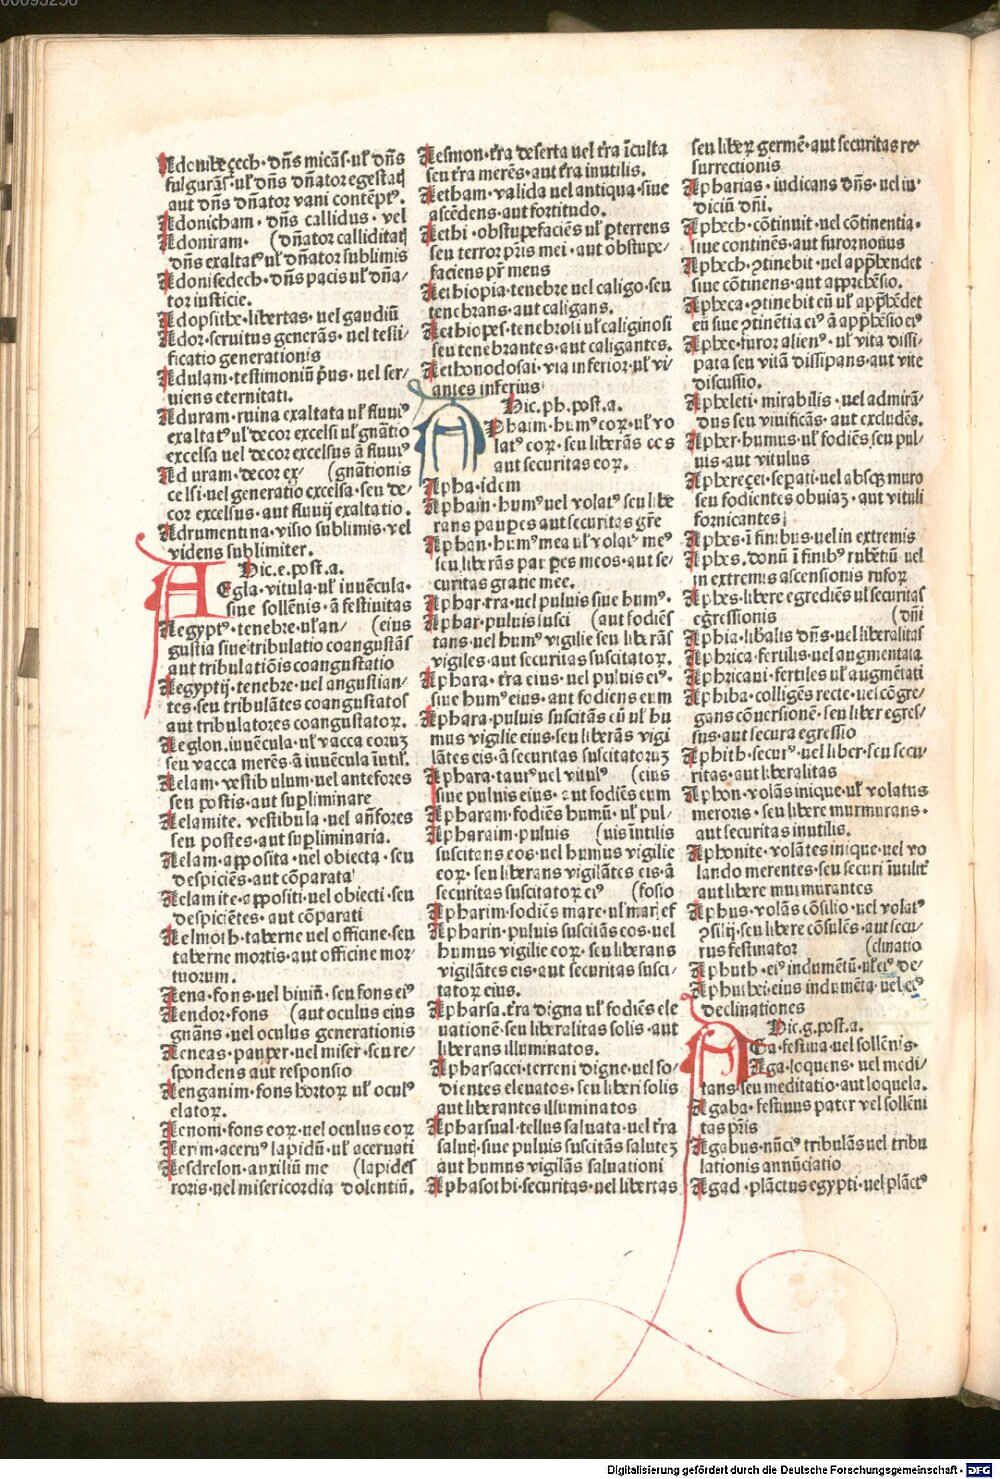 Adonibeçech · dñs micãs · ul' dñs
fulgurãs · ul' dñs dñator egestat͛
aut dñs dñator vani contẽptꝰ.
Adonicham · dñs callidus · vel
Adoniram · (dñator calliditat͛
dñs exaltatꝰ ul' dñator sublimis
Adonisedech · dñs pacis ul' dña/
tor iusticie.
Adopsithe · libertas · vel gaudiũ
Ador · seruitus generãs · uel testi/
ficatio generationis
Adulam · testimoniũ p̃us · uel ser/
uiens eternitati.
Aduram · ruina exaltata ul' fluuiꝰ
exaltatꝰ ul' decor excelsi ul' gnãtio
excelsa uel decor excelsus ã fluuiꝰ
Aduram · decor ex/ (gnãtionis
celsi · uel generatio excelsa · seu de/
cor excelsus · aut fluuij exaltatio.
Adrumentina · visio sublimis · vel
videns sublimiter.
Hic.e.post.a.
AEgla · vitula · ul' iuuẽcula ·
siue sollẽnis · ã festiuitas
Aegyptꝰ · tenebre · ul' an/ (eius
gustia siue tribulatio coangustãs
aut tribulatiõis coangustatio
Aegyptij · tenebre · uel angustian/
tes · seu tribulãtes coangustatos
aut tribulatores coangustatoꝝ.
Aeglon · iuuẽcula · ul' vacca eoruꝫ
seu vacca merẽs · ã iuuẽcula ĩutil'.
Aelam · vestibulum · uel antefores
seu postis · aut supliminare
Aelamite · vestibula · uel añfores
seu postes · aut supliminaria.
Aelam · apposita · uel obiecta · seu
despiciẽs · aut cõparata
Aelamite · appositi · uel obiecti · seu
despiciẽtes · aut cõparati
Aelmoth · taberne uel officine · seu
taberne mortis · aut officine mor/
tuorum.
Aena · fons · uel biuiũ · seu fons eiꝰ
Aendor · fons (aut oculus eius
gnãns · uel oculus generationis
Aeneas · pauper · uel miser · seu re/
spondens aut responsio
Aenganim · fons hortoꝝ ul' oculꝰ
elatoꝝ.
Aenom · fons eoꝝ · uel oculus eoꝝ
Aerim · aceruꝰ lapidũ ul' aceruati
Aesdrelon · auxiliũ me (lapides
roris · uel misericordia dolentiũ.
Aesmon · tr̃a deserta uel tr̃a ĩculta
seu tr̃a merẽs · aut tr̃a inutilis.
Aetham · valida uel antiqua · siue
ascẽdens · aut fortitudo.
Aethi · obstupefaciẽs ul' ꝑterrens
seu terror pr̃is mei · aut obstupe/
faciens pr̃ meus
Aethiopia · tenebre uel caligo · seu
tenebrans · aut caligans.
Aethiopes · tenebrosi ul' caliginosi
seu tenebrantes · aut caligantes.
Aethonodosai · via inferior · ul' vi/
antes inferius
Hic.ph.post.a.
APhaim · humꝰ eoꝝ · ul' vo
latꝰ eoꝝ · seu liberãs eos
aut securitas eoꝝ.
Apha · idem
Aphain · humꝰ uel volatꝰ seu libe
rans paupes aut securitas gr̃e
Aphan · humꝰ mea ul' volatꝰ meꝰ
seu liberãs paupes meos · aut se/
curitas gratie mee.
Aphar · tr̃a · uel puluis siue humꝰ.
Aphar · puluis iusci (aut fodiẽs
tans · uel humꝰ vigilie seu liberãs
vigiles · aut securitas suscitatoꝝ.
Aphara · tr̃a eius · uel puluis eiꝰ.
siue humꝰ eius · aut fodiens eum
Aphara · puluis suscitãs eũ ul' hu
mus vigilie eius · seu liberãs vigi
lãtes eis · ã securitas suscitatoruꝫ
Aphara · taurꝰ uel vitulꝰ (eius
siue puluis eius · aut fodiẽs eum
Apharam · fodiẽs humũ · ul' pul/
Apharaim · puluis (uis inutilis
suscitans eos · uel humus vigilie
eoꝝ · seu liberans vigilãtes eis · ã
securitas suscitatoꝝ eiꝰ (fosio
Apharim · fodiẽs mare · ul' mar͛ ef
Apharin · puluis suscitãs eos · uel
humus vigilie eoꝝ · seu liberans
vigilãtes eis · aut securitas susci/
tatoꝝ eius.
Apharsa · tr̃a digna ul' fodiẽs ele
uationẽ · seu liberalitas solis · aut
liberans illuminatos.
Apharsacei · terreni digne · uel fo/
dientes eleuatos · seu liberi solis
aut liberantes illuminatos
Apharsual · tellus saluata · uel tr̃a
salut͛ · siue puluis suscitãs saluteꝫ
aut humus vigilãs saluationi
Aphasothi · securitas · uel libertas
seu libeꝝ germẽ · aut securitas re/
surrectionis
Apharias · iudicans dñs · uel iu/
diciũ dñi.
Aphech · cõtinuit · uel cõtinentia ·
siue continẽs · aut furor nouus
Aphech · ꝯtinebit · uel appħendet
siue cõtinens · aut appreħẽsio.
Apheca · ꝯtinebit eũ ul' appħẽdet
eũ siue ꝯtinẽtia eiꝰ ã appħẽsio eiꝰ
Aphec · furor alienꝰ · ul' vita dissi/
pata seu vitã dissipans · aut vite
discussio.
Apheleti · mirabilis · uel admirã/
dus seu viuificãs · aut excludẽs.
Apher · humus · ul' fodiẽs seu pul/
uis · aut vitulus
Aphereçei · sepati · uel absqꝫ muro
seu fodientes obuiaꝫ · aut vituli
fornicantes
Aphes · ĩ finibus · uel in extremis
Aphes · donũ ĩ finibꝰ rubetiũ uel
in extremis ascensionis rusoꝝ
Aphes · libere egrediẽs ul' securitas
egressionis (dñi
Aphia · libalis dñs · uel liberalitas
Aphrica · fertilis · uel augmentata
Aphricani · fertiles ul' augmẽtati
Aphiba · colligẽs recte · uel cõgre/
gans cõuersionẽ · seu liber egres/
sus · aut secura egressio
Aphith · securꝰ · uel liber · seu secu/
ritas · aut liberalitas
Aphon · volãs inique · ul' volatus
meroris · seu libere murmurans ·
aut securitas inutilis.
Aphonite · volãtes inique · uel vo
lando merentes · seu securi ĩutilit͛
aut libere murmurantes
Aphus · volãs cõsilio · uel volatꝰ
ꝯsilij · seu libere cõsulẽs · aut secu/
rus festinator (clinatio
Aphuth · eiꝰ indumẽtũ · ul' eiꝰ de/
Aphuthei · eius indumẽta · uel eiꝰ
declinationes
Hic.g.post.a.
AGa · festiua · uel sollẽnis ·
Aga · loquens · uel medi/
tans · seu meditatio · aut loquela.
Agaba · festiuus pater vel sollẽni
tas pr̃is
Agabus · nũciꝰ tribulãs uel tribu
lationis annũciatio
Agad · plãctus egypti · uel plãctꝰ
Digitalisierung gefördert durch die Deutsche Forschungsgemeinschaft - DFG